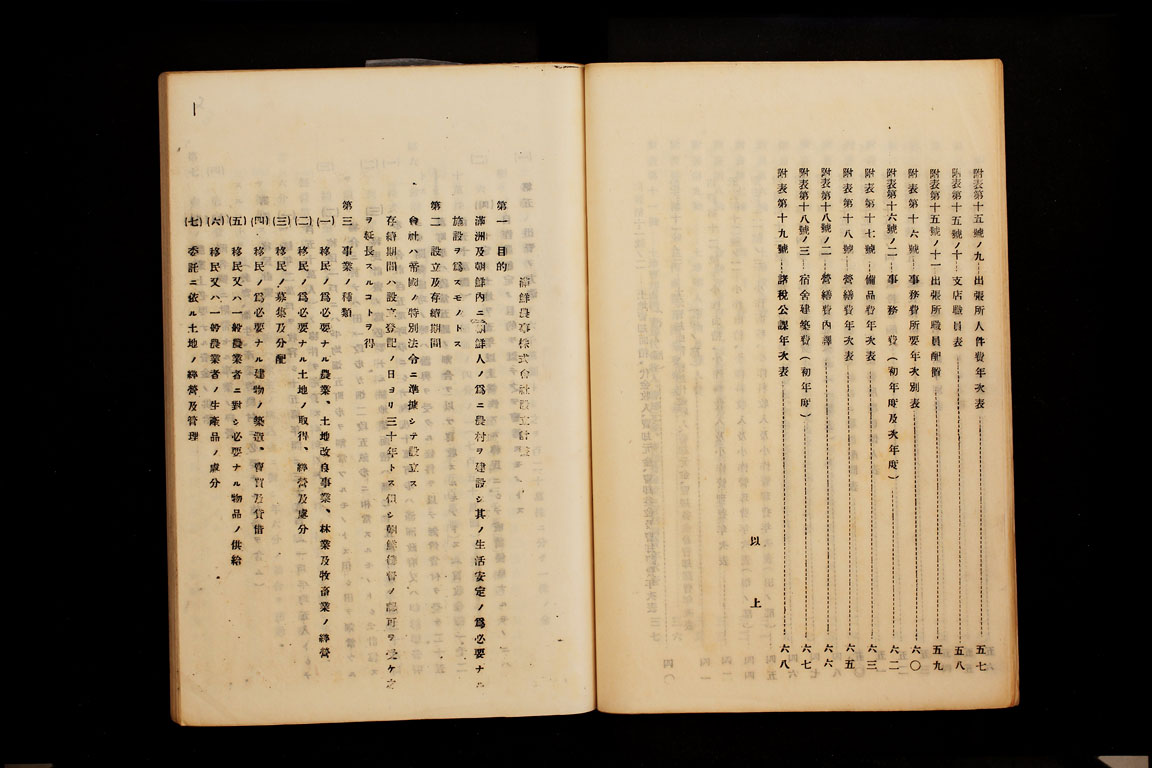 附表第十五號ノ九 出張所人件費年次表 五七
附表第十五號ノ十 支店職員表 五八
附表第十五號ノ十一 出張所職員配置 五九
附表第十六號 事務費所要年次別表 六〇
附表第十六號ノ二 事務費(初年度及次年度) 六二
附表第十七號 備品費年次表 六三
附表第十八號 營繕費年次表 六五
附表第十八號ノ二 營繕費內譯 六六
附表第十八號ノ三 宿舍建築費(初年度) 六七
附表第十九號 諸稅公課年次表 六八
以上
滿鮮農事株式會社設立計畫
第一 目的
滿洲及朝鮮內ニ朝鮮人ノ爲ニ農村ヲ建設シ其ノ生活安定ノ爲必要ナル
施設ヲ爲スモノトス
第二 設立及存續期間
會社ハ帝國ノ特別法令ニ準據シテ設立ス
存續期間ハ設立登記ノ日ヨリ三十年トス但シ朝鮮總督ノ認可ヲ受ケ之
ヲ延長スルコトヲ得
第三 事業ノ種類
(一) 移民ノ爲必要ナル農業、土地改良事業、林業及牧畜業ノ經營
(二) 移民ノ爲必要ナル土地ノ取得、經營及處分
(三) 移民ノ募集及分配
(四) 移民ノ爲必要ナル建物ノ築造、賣買及貸借
(五) 移民又ハ一般農業者ニ對シ必要ナル物品ノ供給
(六) 移民又ハ一般農業者ノ生產品ノ處分
(七) 委託ニ依ル土地ノ經營及管理
1